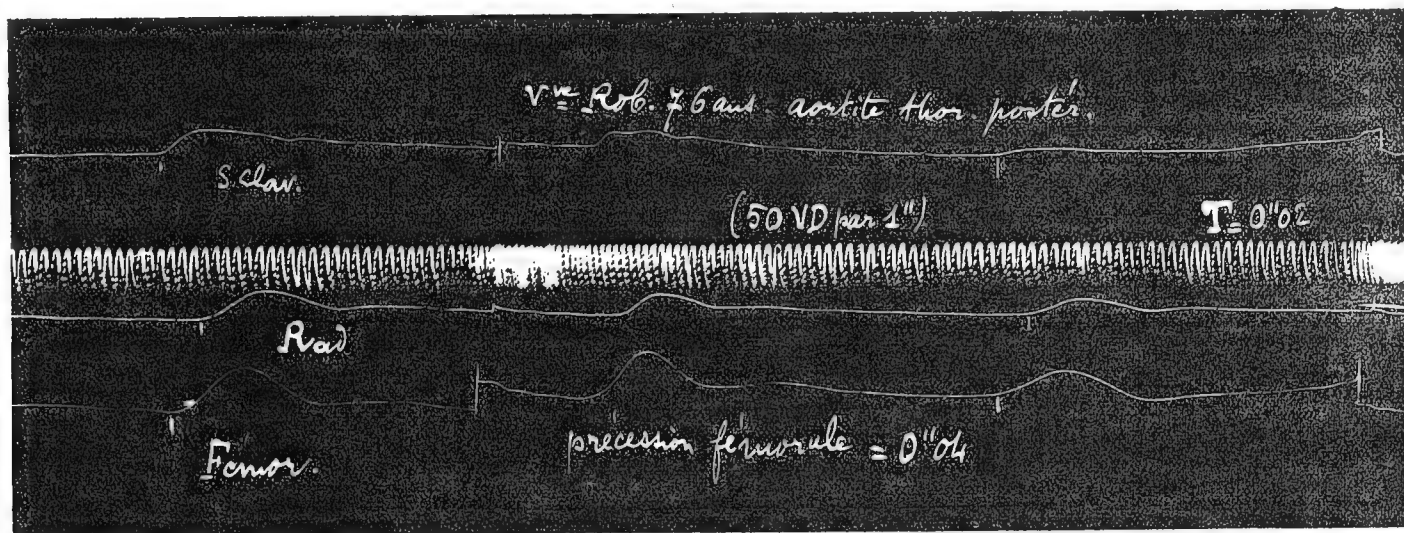 Vve Rob. 76 ans. aortite thor. postér.
s. clav.
(50 VD par 1") T = 0"02
Rad
Fémor.
précession fémorale = 0"04